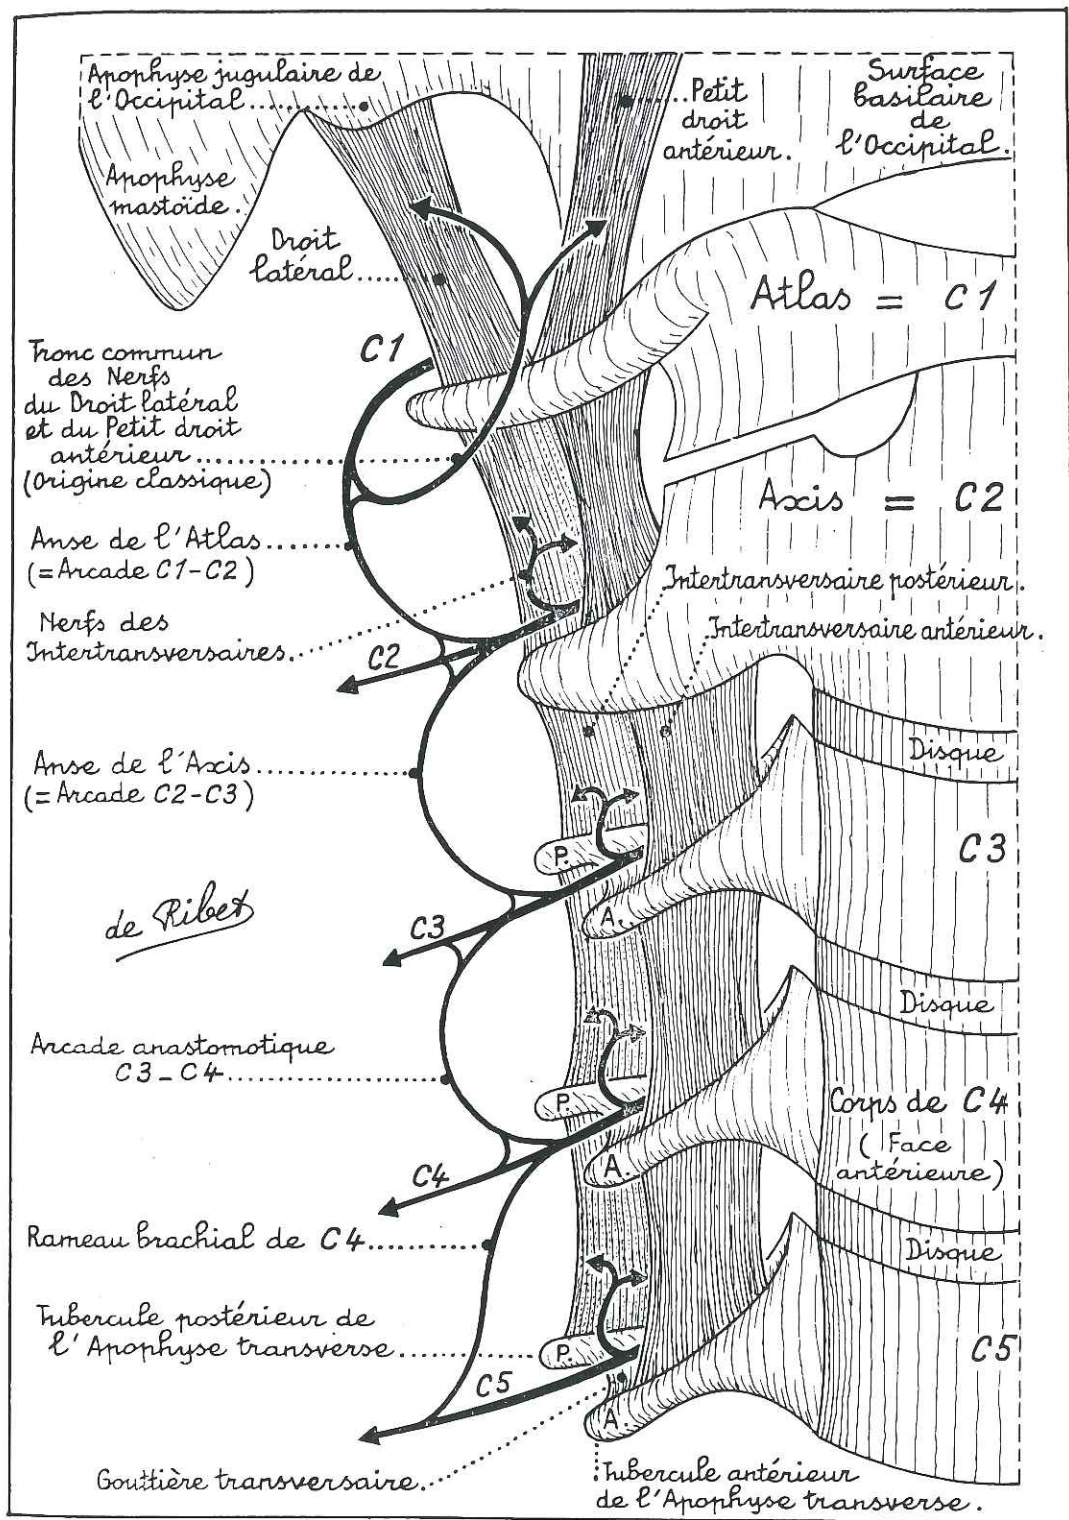 Apophyse jugulaire de
l'Occipital
Petit
droit
antérieur.
Surface
basilaire
de
l'Occipital.
Apophyse
mastoïde.
Droit
latéral
Atlas = C1
C1
Tronc commun
des Nerfs
du Droit latéral
et du Petit droit
antérieur
(Origine classique)
Axis = C2
Anse de l'Atlas
(=Arcade C1-C2)
Intertransversaire postérieur.
Nerfs des
Intertransversaires.
Intertransversaire antérieur.
C2
Disque
Anse de l'Axis
(=Arcade C2-C3)
C3
P.
A.
de Ribet
C3
Disque
Arcade anastomotique
C3-C4
P.
Corps de C4
(Face
antérieure)
A.
C4
Rameau brachial de C4
Disque
Tubercule postérieur de
l'Apophyse transverse
P.
C5
C5
A.
Gouttière transversaire.
Tubercule antérieur
de l'Apophyse transverse.